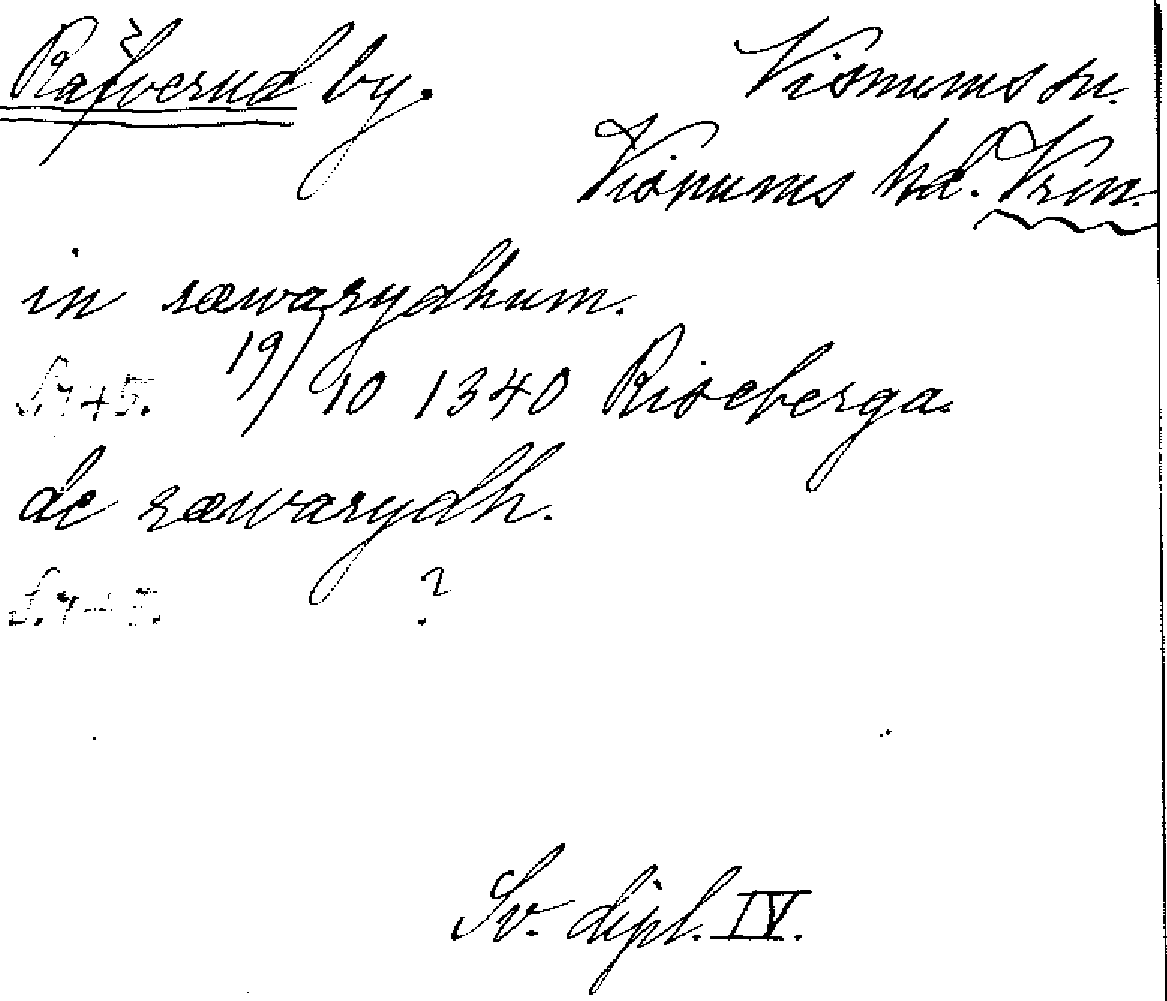 Räfverud by. Visnums sn.
Visnums hd. Vrm.
in ræwarydhum.
S. 745. 19/10 1340 Riseberga.
de ræwarydh.
?
Sv. dipl. IV.